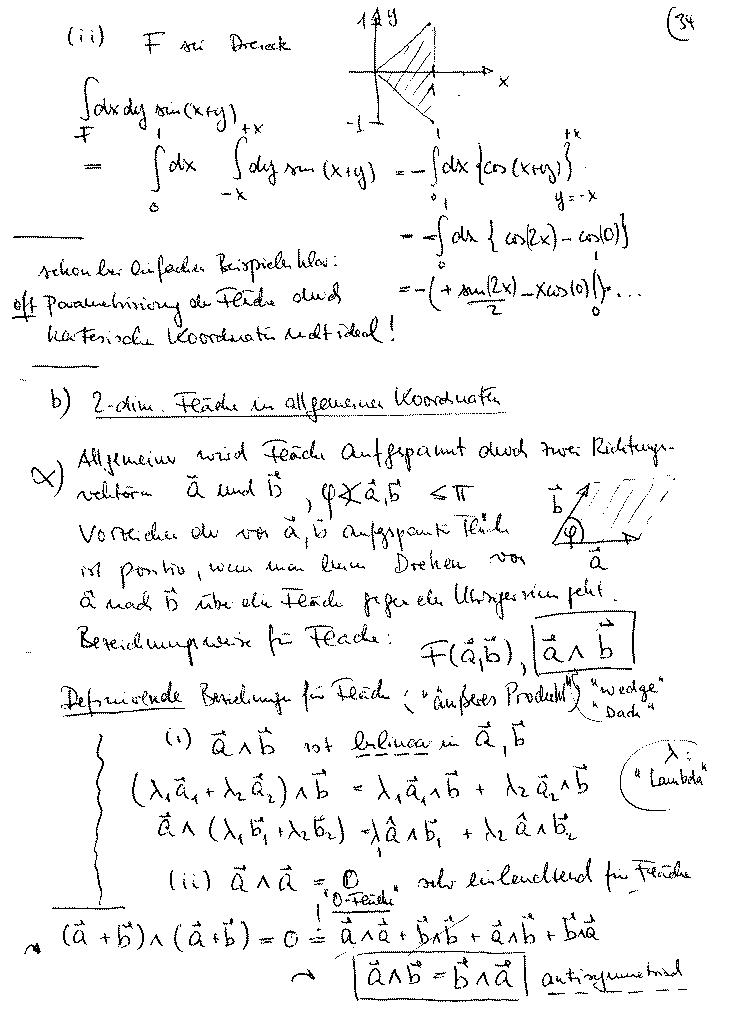 (34
(ii) F sei Dreieck
1 y
x
1
-1
∫_F dxdy sin(x+y)
= ∫_0^1 dx ∫_{-x}^{+x} dy sin(x+y) = -∫_0^1 dx {cos(x+y)}_{y=-x}^{+x}
= -∫_0^1 dx { cos(2x) - cos(0)}
= -(+ sin(2x)/2 - x cos(0)|_0^1) = ...
schon bei einfachen Beispielen klar:
oft Parametrisierung der Fläche durch
kartesische Koordinaten nicht ideal!
b) 2-dim. Fläche in allgemeinen Koordinaten
α) Allgemeiner wird Fläche aufgespannt durch zwei Richtungs-
vektoren a⃗ und b⃗, φ∢a⃗,b⃗ ≤ π
b⃗ φ a⃗
Vorzeichen der von a⃗, b⃗ aufgespannten Fläche
ist positiv, wenn man beim Drehen von
a⃗ nach b⃗ über die Fläche gegen den Uhrzeigersinn geht.
Bezeichnungsweise für Fläche: F(a⃗,b⃗), a⃗ ∧ b⃗
Definierende Beziehungen für Fläche ("äußeres Produkt") "wedge"
"Dach"
(i) a⃗∧b⃗ ist bilinear in a⃗, b⃗
(λ₁a⃗₁ + λ₂a⃗₂)∧b⃗ = λ₁a⃗₁∧b⃗ + λ₂a⃗₂∧b⃗
λ:
"Lambda"
a⃗∧(λ₁b⃗₁+λ₂b⃗₂) = λ₁a⃗∧b⃗₁ + λ₂a⃗∧b⃗₂
(ii) a⃗∧a⃗ = 0 sehr einleuchtend für Fläche
"0-Fläche"
↝ (a⃗+b⃗)∧(a⃗+b⃗) = 0 = a⃗∧a⃗ + b⃗∧b⃗ + a⃗∧b⃗ + b⃗∧a⃗
↝ a⃗∧b⃗ = b⃗∧a⃗ antisymmetrisch